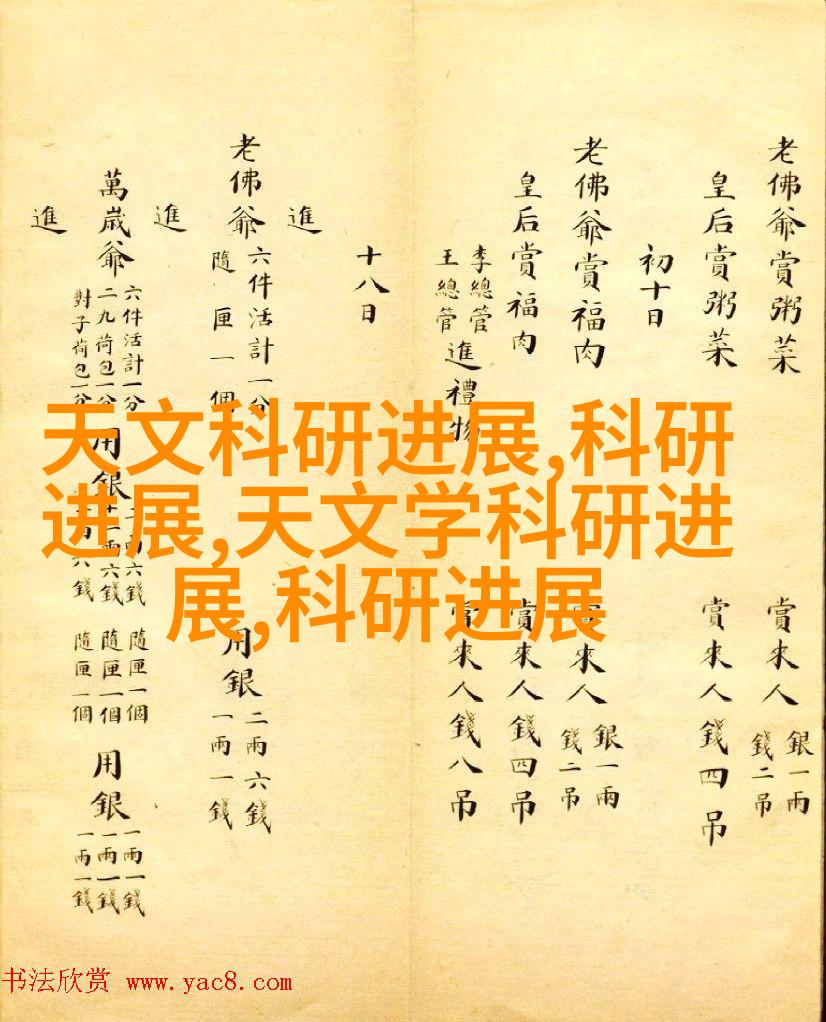 老佛爺賞粥菜 賞來人 銀一兩 錢二吊
皇后賞粥菜 賞來人錢四吊
初十日
老佛爺賞福肉 賞來人 銀一兩 錢二吊
皇后賞福肉 賞來人錢四吊
李總管 王總管 進禮物 賞來人錢八吊
十八日
進
老佛爺 六件活計一分 隨匣一個 用銀 二兩六錢 一兩一錢
進
萬歲爺 六件活計一分 二九荷包一分 對子荷包一分 用銀 兩六錢 兩六錢 六錢 隨匣一個 隨匣一個 隨匣一個 用銀 一兩一錢 一兩一錢 一兩一錢
進
天文科研进展,科研
进展,天文学科研进
展,科研进展
书法欣赏 www.yac8.com